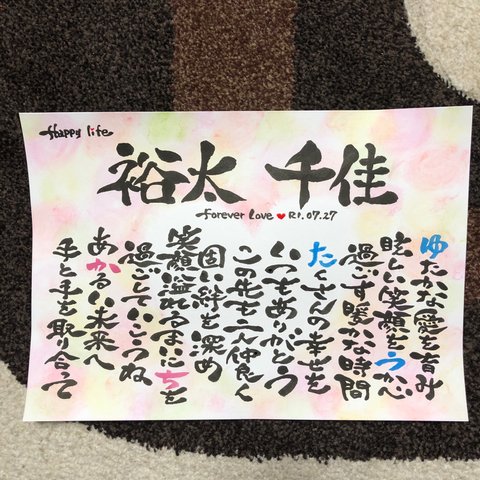 Happy life
裕太 千佳
Forever Love ♥ R1.07.27
ゆたかな愛を育み
眩しい笑顔をうかべ
過ごす暖かな時間
たくさんの幸せを
いつもありがとう
この先も二人仲良く
固い絆を深め
笑顔溢れるまいにちを
過ごしていこうね
あかるい未来へ
手と手を取り合って